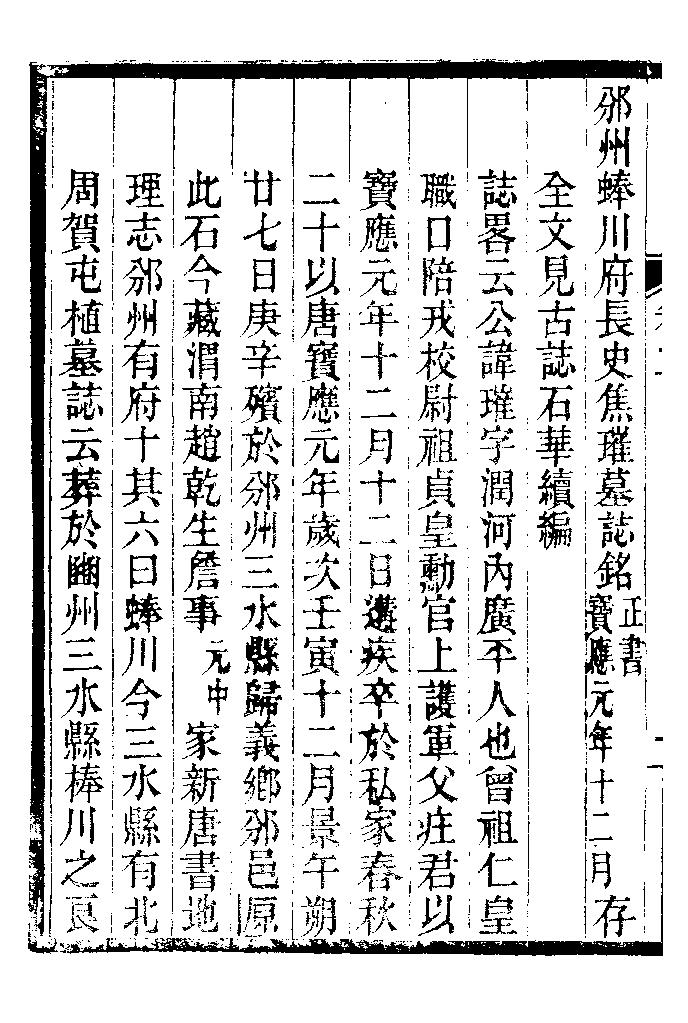 邠州蜯川府長史焦璀墓誌銘 正書 寶應元年十二月 存
全文見古誌石華續編
誌畧云公諱璀字潤河內廣平人也曾祖仁皇
職口陪戎校尉祖貞皇勳官上護軍父庄君以
寶應元年十二月十二日遘疾卒於私家春秋
二十以唐寶應元年歲次壬寅十二月景午朔
廿七日庚辛殯於邠州三水縣歸義鄉邠邑原
此石今藏渭南趙乾生詹事元中家新唐書地
理志邠州有府十其六曰蜯川今三水縣有北
周賀屯植墓誌云葬於豳州三水縣棒川之良